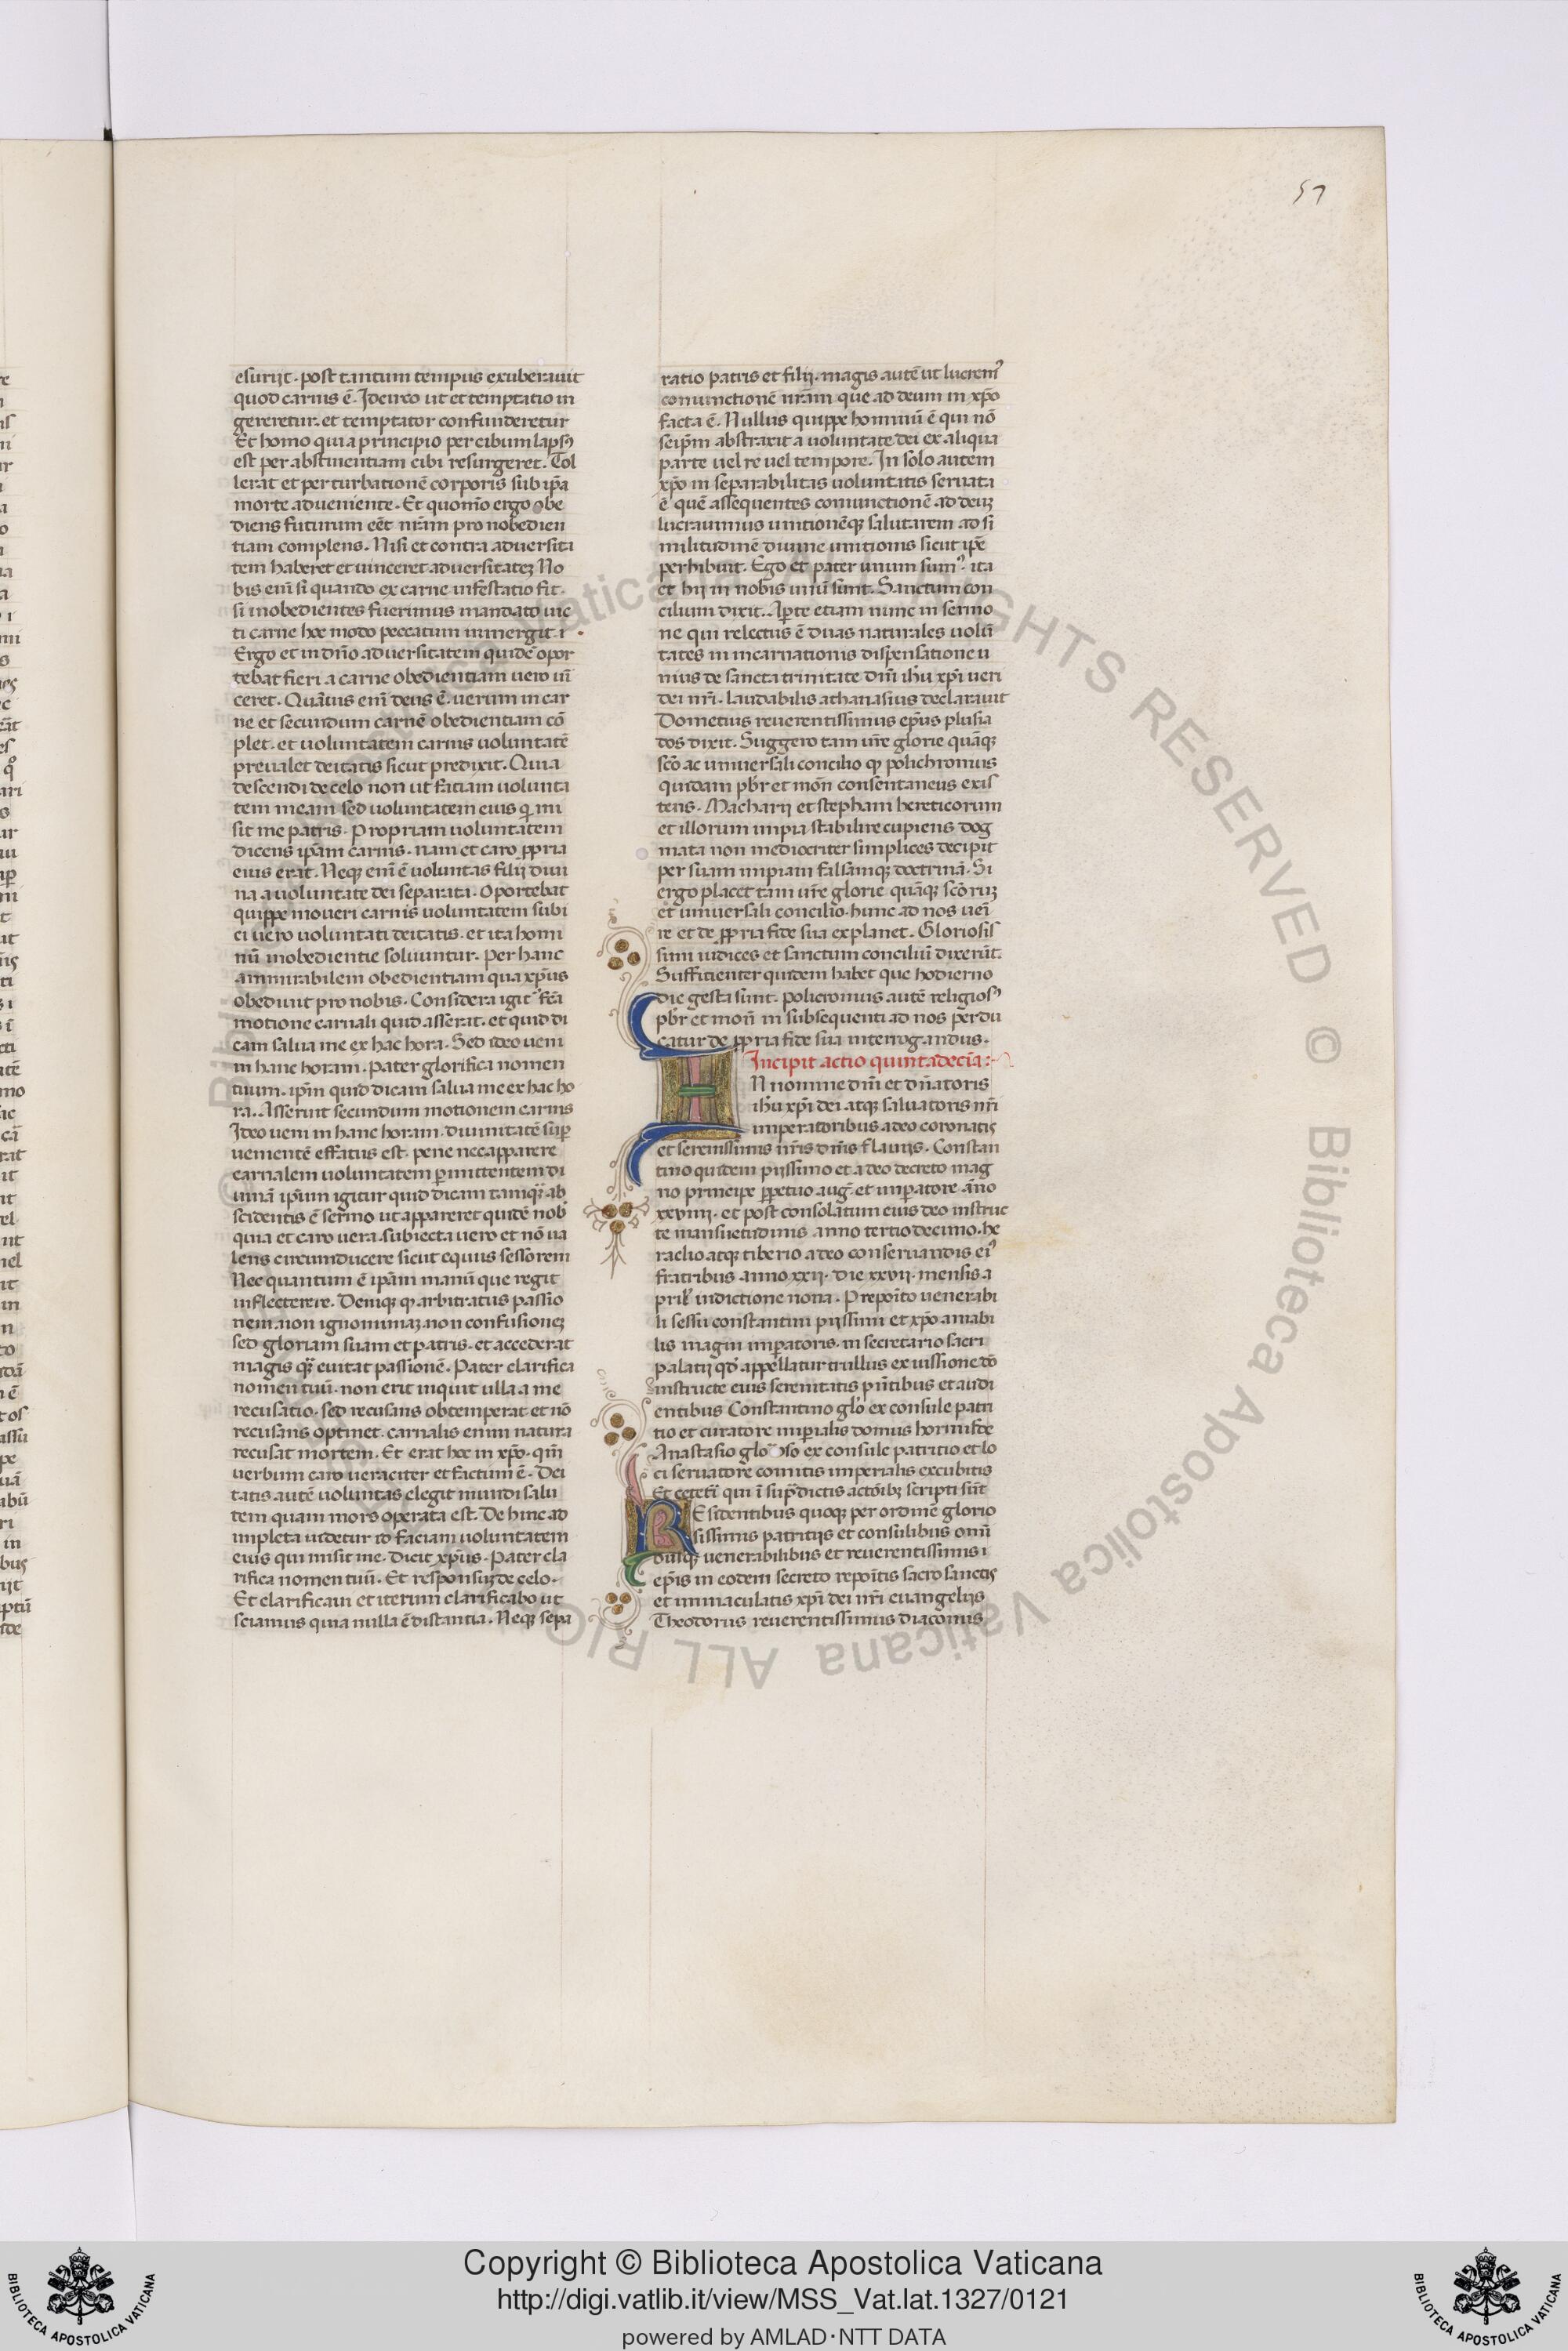 57
esurijt. post tantum tempus exuberauit
quod carnis ē. Idcirco ut et temptatio in
gereretur. et temptator confunderetur
Et homo qui a principio per cibum lapsꝰ
est per abstinentiam cibi resurgeret. Tol
lerat et perturbationē corporis sub ip̄a
morte adueniente. Et quom̄o ergo obe
diens futurum eēt nr̄am pro nobedien
tiam complens. Nisi et contra aduersita
tem haberet et uinceret aduersitatez No
bis em̄ si quando ex carne infestatio fit.
si inobedientes fuerimus mandato uic
ti carne hoc modo peccatum inmergit. i
Ergo et in dn̄o aduersitatem quidē opor
tebat fieri a carne obedientiam uero ui
ceret. Quāuis em̄ deus ē. uerum in car
ne et secundum carnē obedientiam cō
plet. et uoluntatem carnis uoluntatē
preualet deitatis sicut predixit. Quia
descendi de celo non ut faciam uolunta
tem meam sed uoluntatem eius q̄ mi
sit me patris. Propriam uoluntatem
dicens ip̄am carnis. nam et caro ꝓpria
eius erat. Neqꝫ em̄ ē uoluntas filij diui
na a uoluntate dei separata. Oportebat
quippe moueri carnis uoluntatem subi
ci uero uoluntati deitatis. et ita homi
nū inobedientie soluuntur. Per hanc
ammirabilem obedientiam qua xp̄us
obediuit pro nobis. Considera igit᷑ fcā
motione carnali quid asserat. et quid di
cam salua me ex hac hora. Sed ideo ueni
in hanc horam. Pater glorifica nomen
tuum. ip̄m quid dicam salua me ex hac ho
ra. Asserunt secundum motionem carnis
Ideo ueni in hanc horam. diuinitatē suꝑ
uenientē effatus est. pene nec apparere
carnalem uoluntatem ꝑmittentem di
uinā ip̄um igitur quid dicam tamq̄ ab
scidentis ē sermo ut appareret quidē nob̄
quia et caro uera. subiecta uero et nō ua
lens circumducere sicut equus sessorem
Nec quantum ē ip̄am manū que regit
inflecterere. Deniqꝫ qꝫ arbitratus passio
nem. non ignominiaz. non confusionez
sed gloriam suam et patris. et accederat
magis q̄ euitat passionē. Pater clarifica
nomen tuū. non erit inquit ulla a me
recusatio. sed recusans obtemperat et nō
recusans optinet. carnalis enim natura
recusat mortem. Et erat hoc in xp̄o. qm̄
uerbum caro ueraciter et factum ē. Dei
tatis autē uoluntas elegit mundi salu
tem quam mors operata est. De hinc ad
impleta uidetur id faciam uoluntatem
eius qui misit me. Dicit xp̄us. Pater cla
rifica nomen tuū. Et responsuz de celo.
Et clarificaui et iterum clarificabo ut
sciamus quia nulla ē distantia. Neqꝫ sepa
ratio patris et filij. magis autē ut lucremꝰ
coniunctionē nr̄am que ad deum in xp̄o
facta ē. Nullus quippe hominū ē qui nō
seip̄m abstraxit a uoluntate dei ex aliqua
parte uel re uel tempore. In solo autem
xp̄o inseparabilitas uoluntatis seruata
ē quē assequentes coniunctionē ad deuz
lucrauimus unitionēqꝫ salutarem ad si
militudinē diuine unitionis sicut ip̄e
perhibuit. Ego et pater unum sumꝰ. ita
et hij in nobis unū sunt. Sanctum con
cilium dixit. Aꝑte etiam nunc in sermo
ne qui relectus ē duas naturales uolū
tates in incarnationis dispensatione u
nius de sancta trinitate dn̄i ih̄u xp̄i ueri
dei nr̄i. laudabilis athanasius declarauit
Dometius reuerentissimus ep̄us plusia
dos dixit. Suggero tam ur̄e glorie quāqꝫ
scō ac uniuersali concilio qꝫ polichromus
quidam pb̄r et mōn consentaneus exis
tens. Macharij et stephani hereticorum
et illorum impia stabilire cupiens dog
mata non mediocriter simplices decipit
per suam impiam falsamqꝫ doctrinā. Si
ergo placet tam ur̄e glorie. quāqꝫ scō ruz
et uniuersali concilio. hunc ad nos ueni
re et de ꝓpria fide sua explanet. Gloriosis
simi iudices et sanctum conciliū dixerūt.
Sufficienter quidem habet que hodierno
die gesta sunt. policromus autē religiosꝰ
pb̄r et mon̄ in subsequenti ad nos perdu
catur de ꝓpria fide sua interrogandus.
Incipit actio quintadecīa:
IN nomine dn̄i et dn̄atoris
ih̄u xp̄i dei atqꝫ saluatoris nr̄i
imperatoribus a deo coronatis
et serenissimis nr̄is dn̄is flauijs. Constan
tino quidem pijssimo et a deo decreto mag
no principe ꝑpetuo auḡ. et imꝑatore āno
xxviiij. et post consolatum eius deo instruc
te mansuetudinis anno tertiodecimo. he
raclio atqꝫ tiberio a deo conseruandis eiꝰ
fratribus anno xxij. die xxvij. mensis a
pril̄ indictione nona. Prepoīto uenerabi
li sessu constantini pijssimi et xp̄o amabi
lis magni imꝑatoris. in secretario sacri
palatij qd̄ appellatur trullus ex uissione dō
instructe eius serenitatis pn̄tibus et audi
entibus Constantino glō ex consule patri
tio et curatore imꝑialis domus hormisde
Anastasio glo oso ex consule patritio et lo
ci seruatore comitis imperialis excubitis
Et ceter̄i qui ī sup̄dictis actōibꝫ scripti sūt
REsidentibus quoqꝫ per ordinē glorio
sissimis patritijs et consulibus omī
busqꝫ uenerabilibus et reuerentissimis i
ep̄is in eodem secreto repoītis sacro sanctis
et immaculatis xp̄i dei nr̄i euangelijs
Theodorus reuerentissimus diaconus
© Biblioteca Apostolica Vaticana ALL RIGHTS RESERVED © Biblioteca Apostolica Vaticana ALL RIGHTS RESERVED
Copyright © Biblioteca Apostolica Vaticana
http://digi.vatlib.it/view/MSS_Vat.lat.1327/0121
powered by AMLAD·NTT DATA
BIBLIOTECA APOSTOLICA VATICANA
BIBLIOTECA APOSTOLICA VATICANA